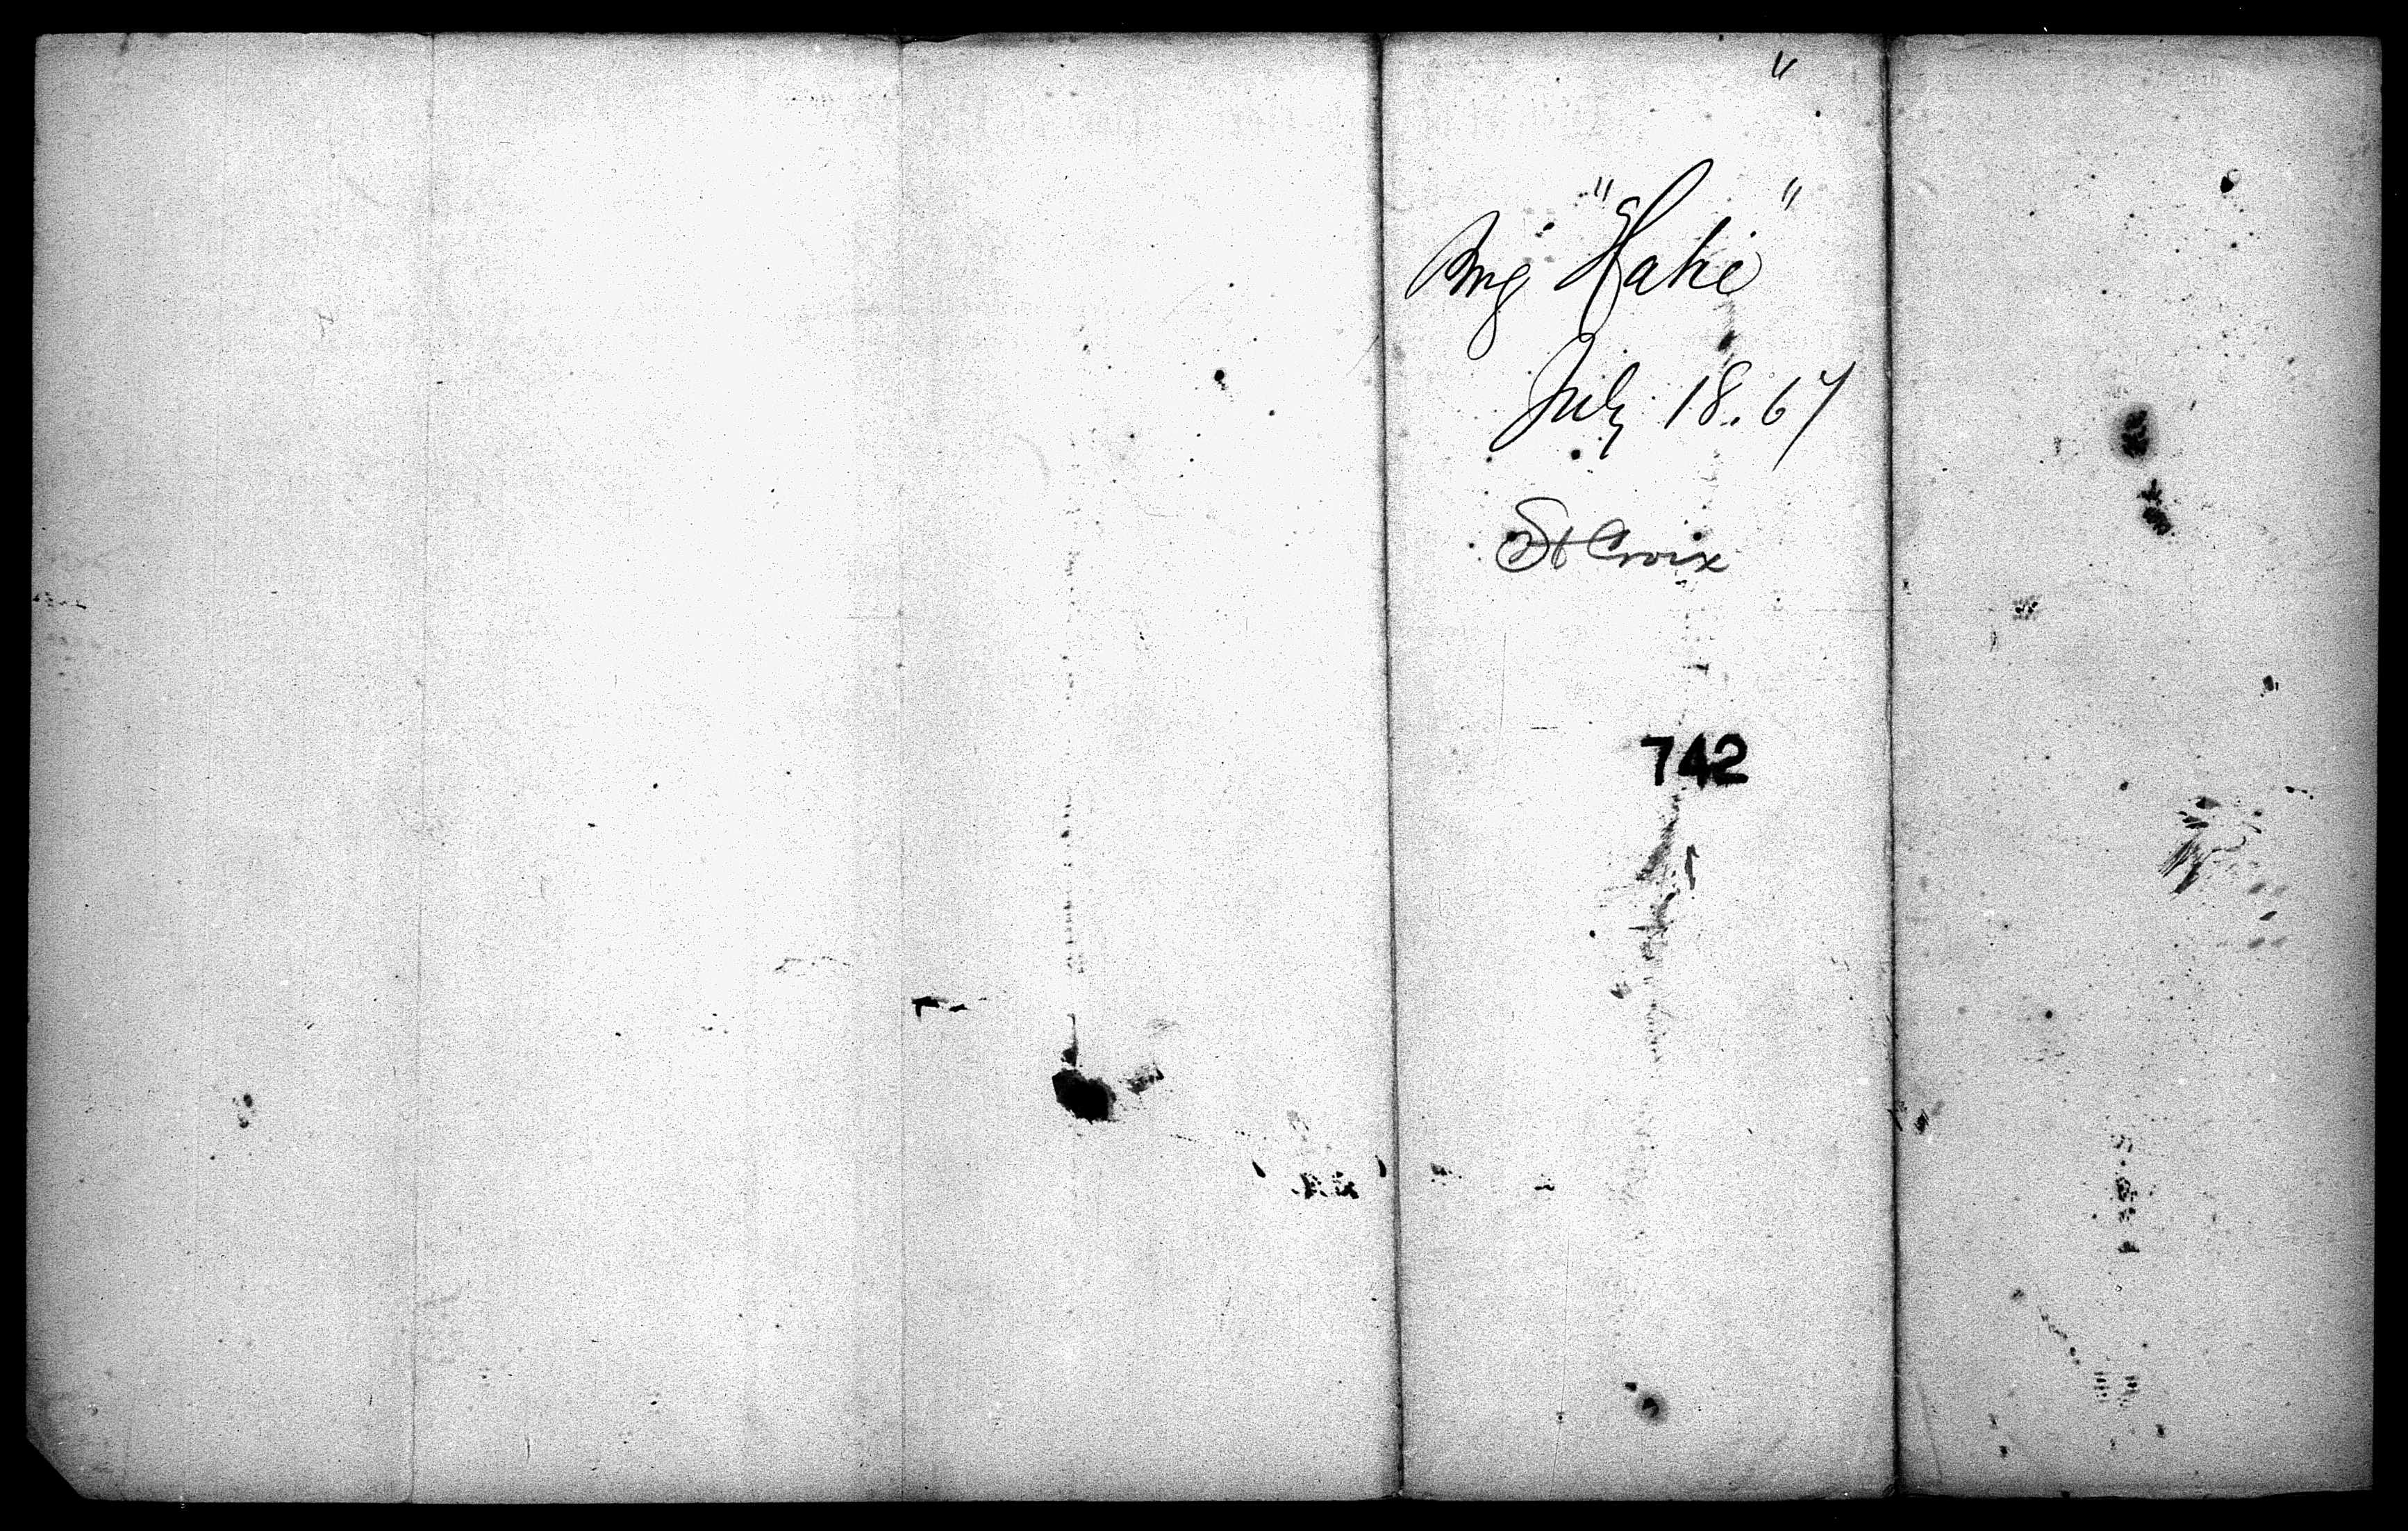 "
Brig "Katie"
July 18. 67
St Croix
742